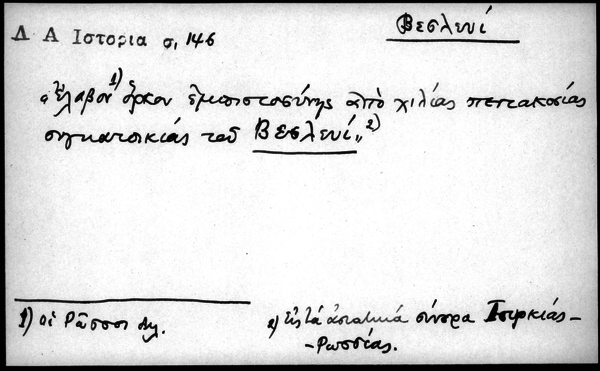 Δ Α Ιστορια σ, 146
Βεσλενί
«Ἔλαβον 1) ὅρκον ἐμπιστοσύνης ἀπὸ χιλίας πεντακοσίας
συγκατοικίας τοῦ Βεσλενί,, 2)
1) οἱ Ρῶσσοι δηλ.
2) Εἰς τά ἀσιατικά σύνορα Τουρκίας–
–Ρωσσίας.